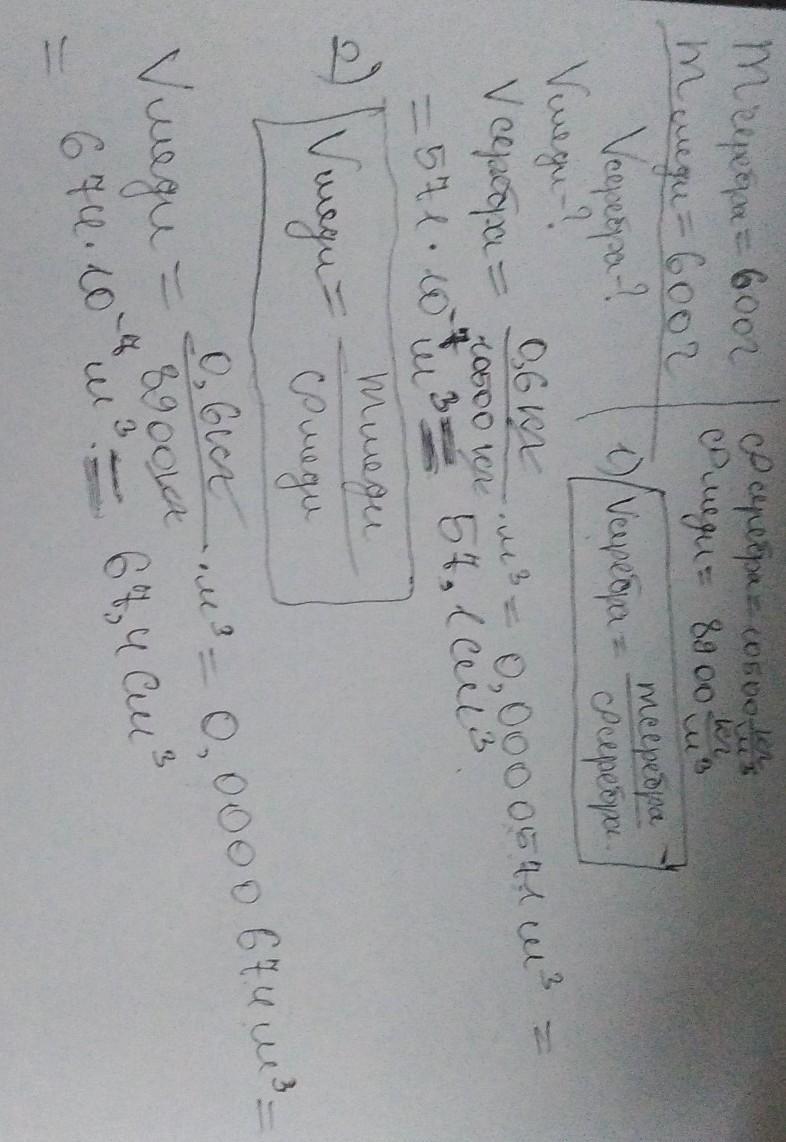 m серебра = 600г
m меди = 600г
V серебра-?
V меди-?
ρ серебра = 10500 кг/м³
ρ меди = 8900 кг/м³
1) V серебра = m серебра / ρ серебра.
V серебра = 0,6кг / 10500 кг · м³ = 0,0000571 м³ =
= 571 · 10⁻⁷ м³ = 57,1 см³.
2) V меди = m меди / ρ меди
V меди = 0,6кг / 8900кг · м³ = 0,0000674 м³ =
= 674 · 10⁻⁷ м³. = 67,4 см³